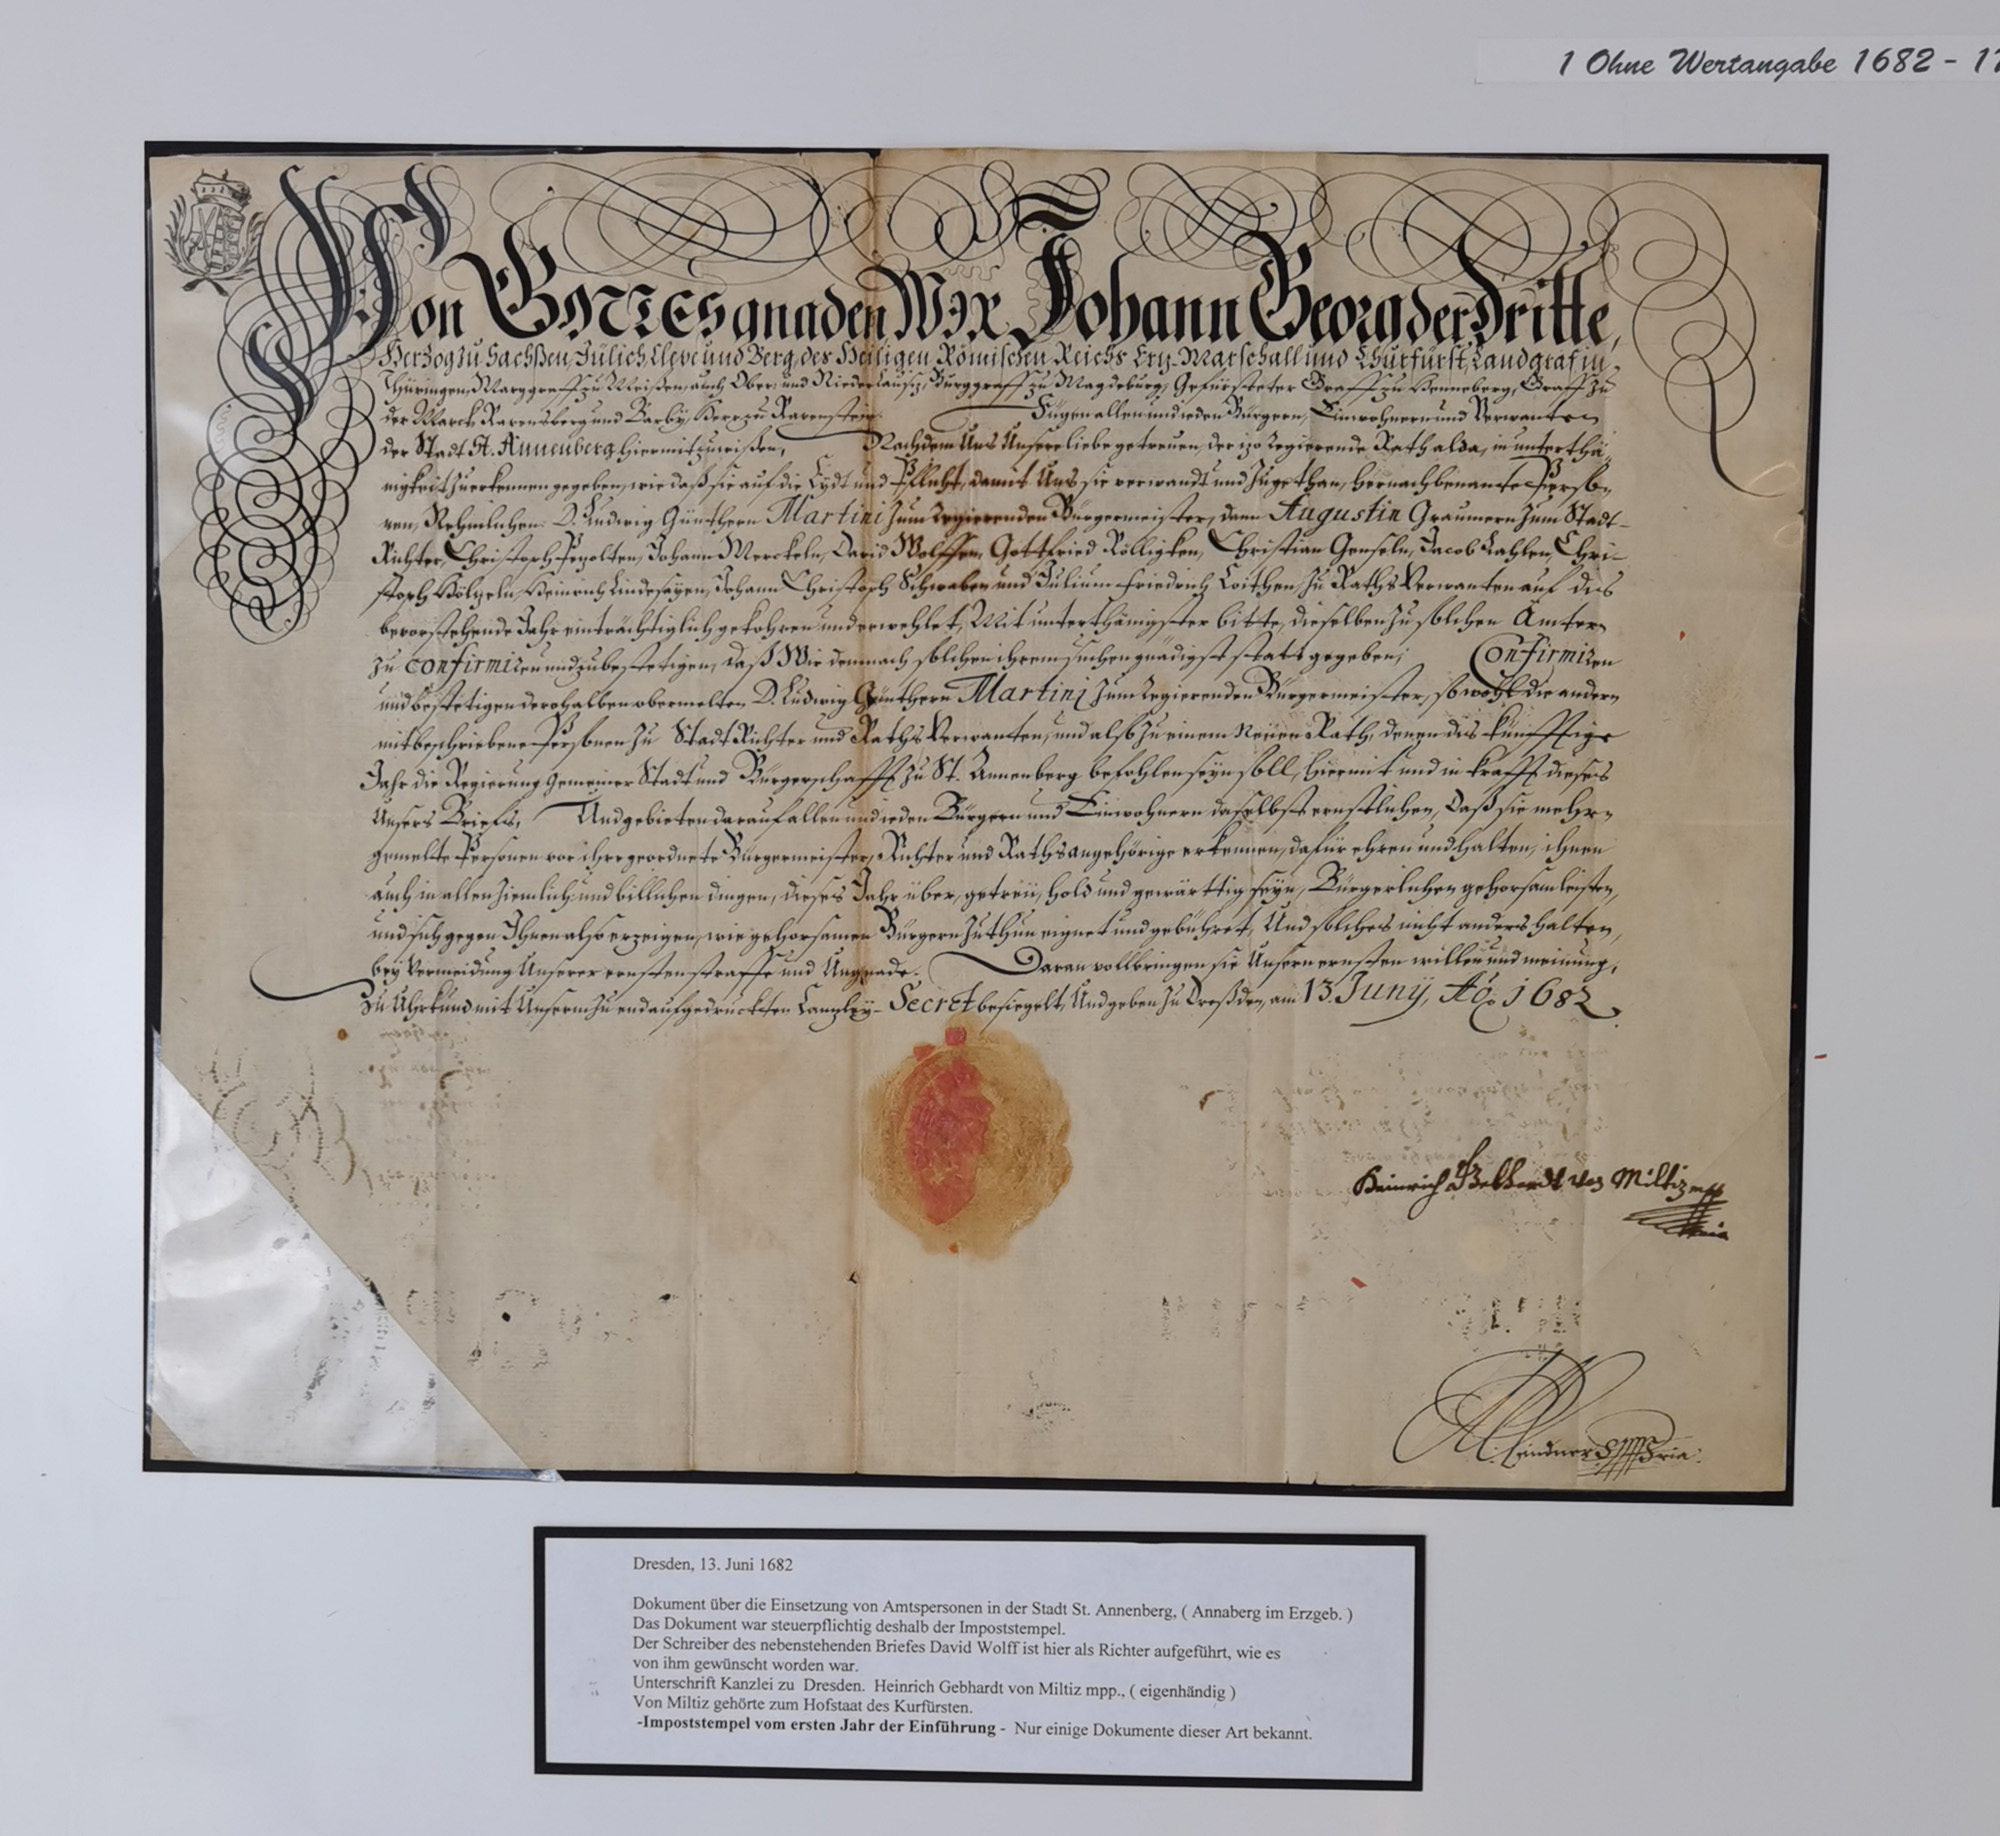 1 Ohne Wertangabe 1682 - 17
Von GOTTES gnaden WIR Johann Georg der Dritte,
Herzog zu Sachßen, Jülich, Cleve und Berg, des Heiligen Römischen Reichs Erz-Marschall und Churfürst, Landgraf in
Thüringen, Marggraff zu Meißen, auch Ober- und Nieder Lausiz, Burggraff zu Magdeburg, Gefürsteter Graff zu Henneberg, Graff zu
der Marck Ravensberg und Barby, Herr zu Ravenstein Fügen allen und ieden Bürgern, Einwohnern und Verwanten
der Stadt St. Annenberg hiermit zu wißen, Nachdem Uns Unsere liebe getreuen, der izo regierende Rath alda, in unterthä-
nigkeit zu erkennen gegeben, wie daß sie auf die Eydt und Pflicht, damit Uns sie verwandt und zugethan, hernachbenante Perso-
nen, Nehmlichen D. Ludwig Günthern Martini zum regierenden Bürgermeister, dann Augustin Graunern zum Stadt-
Richter, Christoph Pezolten, Johann Merckeln, David Wolffen, Gottfried Rölligken, Christian Genseln, Jacob Lahlen, Chri-
stoph Hölzeln, Heinrich Lindesayen, Johann Christoph Schwaben und Julium Friedrich Loithen zu Raths Verwanten auf dis
bevorstehende Jahr einträchtiglich gekohren und erwehlet, Mit unterthänigster bitte, dieselben zu solchen Ämtern
zu confirmiren und zu bestetigen, daß Wir demnach solchen ihrem suchen gnädigst statt gegeben; Confirmiren
und bestetigen derohalben obermelten D. Ludwig Günthern Martini zum regierenden Bürgermeister, so wohl die andern
mitbeschriebene Personen zu Stadt Richter und Raths Verwanten, und also zu einem Neüen Rath, denen dis künfftige
Jahr die Regierung gemeiner Stadt und Bürgerschafft zu St. Annenberg befohlen seyn soll, hiermit und in krafft dieses
Unsers Briefs, Und gebieten darauf allen und ieden Bürgern und Einwohnern daselbst ernstlichen, Daß sie mehr-
gemelte Personen vor ihre geordnete Bürgermeister, Richter und Raths angehörige erkennen, dafür ehren und halten, ihnen
auch in allen ziemlich und billichen dingen, dieses Jahr über, getreü, hold und gewärttig seyn, Bürgerlichen gehorsam leisten,
und sich gegen Ihnen also erzeigen, wie gehorsamen Bürgern zu thun eignet und gebühret, Und solches nicht anders halten,
bey Vermeidung Unserer ernsten straffe und Ungnade. Daran vollbringen sie Unsern ernsten willen und meinung,
zu Uhrkund mit Unserm zu end aufgedruckten Canzley-Secret besiegelt, Und geben zu Dreßden, am 13. Junij, Ao. 1682.
Heinrich Gebhardt von Miltiz mpp
ria
Lindner
Dresden, 13. Juni 1682
Dokument über die Einsetzung von Amtspersonen in der Stadt St. Annenberg, ( Annaberg im Erzgeb. )
Das Dokument war steuerpflichtig deshalb der Impoststempel.
Der Schreiber des nebenstehenden Briefes David Wolff ist hier als Richter aufgeführt, wie es
von ihm gewünscht worden war.
Unterschrift Kanzlei zu Dresden. Heinrich Gebhardt von Miltiz mpp., ( eigenhändig )
Von Miltiz gehörte zum Hofstaat des Kurfürsten.
-Impoststempel vom ersten Jahr der Einführung - Nur einige Dokumente dieser Art bekannt.